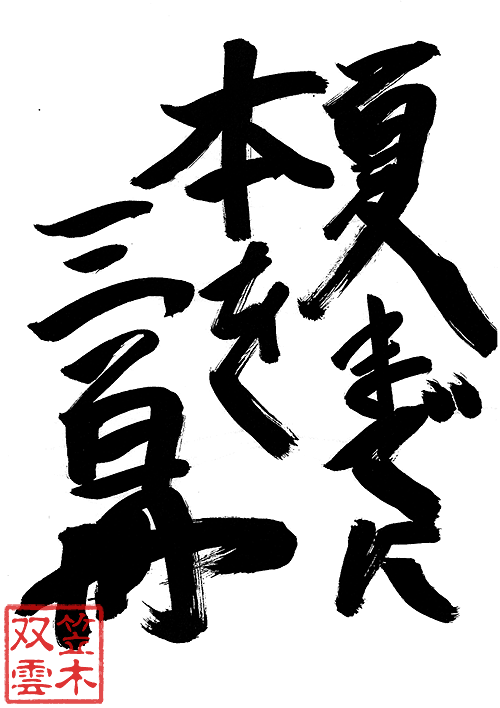 夏までに
本を
三百冊
笠木
双雲